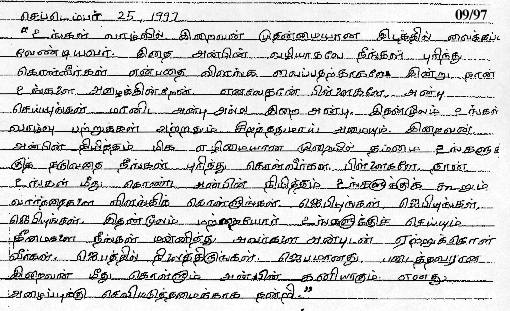 செப்டெம்பர் 25, 1997
09/97
"உங்கள் வாழ்வில் இறைவன் முதன்மையான இடத்தில் வைக்கப்பட
வேண்டியவர். இதை அன்பின் வழியாகவே நீங்கள் புரிந்து
கொள்வீர்கள் என்பதை விளங்க வைப்பதற்காகவே இன்று நான்
உங்களை அழைக்கின்றேன். எனவேதான் பிள்ளைகளே, அன்பு
செய்யுங்கள் மானிட அன்பு அல்ல இறை அன்பு. இதன்மூலம் உங்கள்
வாழ்வு பற்றுக்கள் அற்றதும் சிறந்ததுமாய் அமையும் இறைவன்
அன்பின் நிமித்தம் மிக எளிமையான முறையில் தம்மை உங்களுக்
குத் தருவதை நீங்கள் புரிந்து கொள்வீர்கள். பிள்ளைகளே, நான்
உங்கள் மீது கொண்ட அன்பின் நிமித்தம் உங்களுக்குக் கூறும்
வார்த்தைகளை விளங்கிக் கொள்ளுங்கள். ஜெபியுங்கள், ஜெபியுங்கள்,
ஜெபியுங்கள். இதன்மூலம் மற்றையோர் உங்களுக்குச் செய்யும்
தீமைகளை நீங்கள் மன்னித்து அவர்களை அன்புடன் ஏற்றுக்கொள்
வீர்கள். ஜெபத்தில் நிலைத்திருங்கள். ஜெபமானது, படைத்தவரான
இறைவன் மீது கொள்ளும் அன்பின் கனியாகும். எனது
அழைப்புக்கு செவிமடுத்தமைக்காக நன்றி."